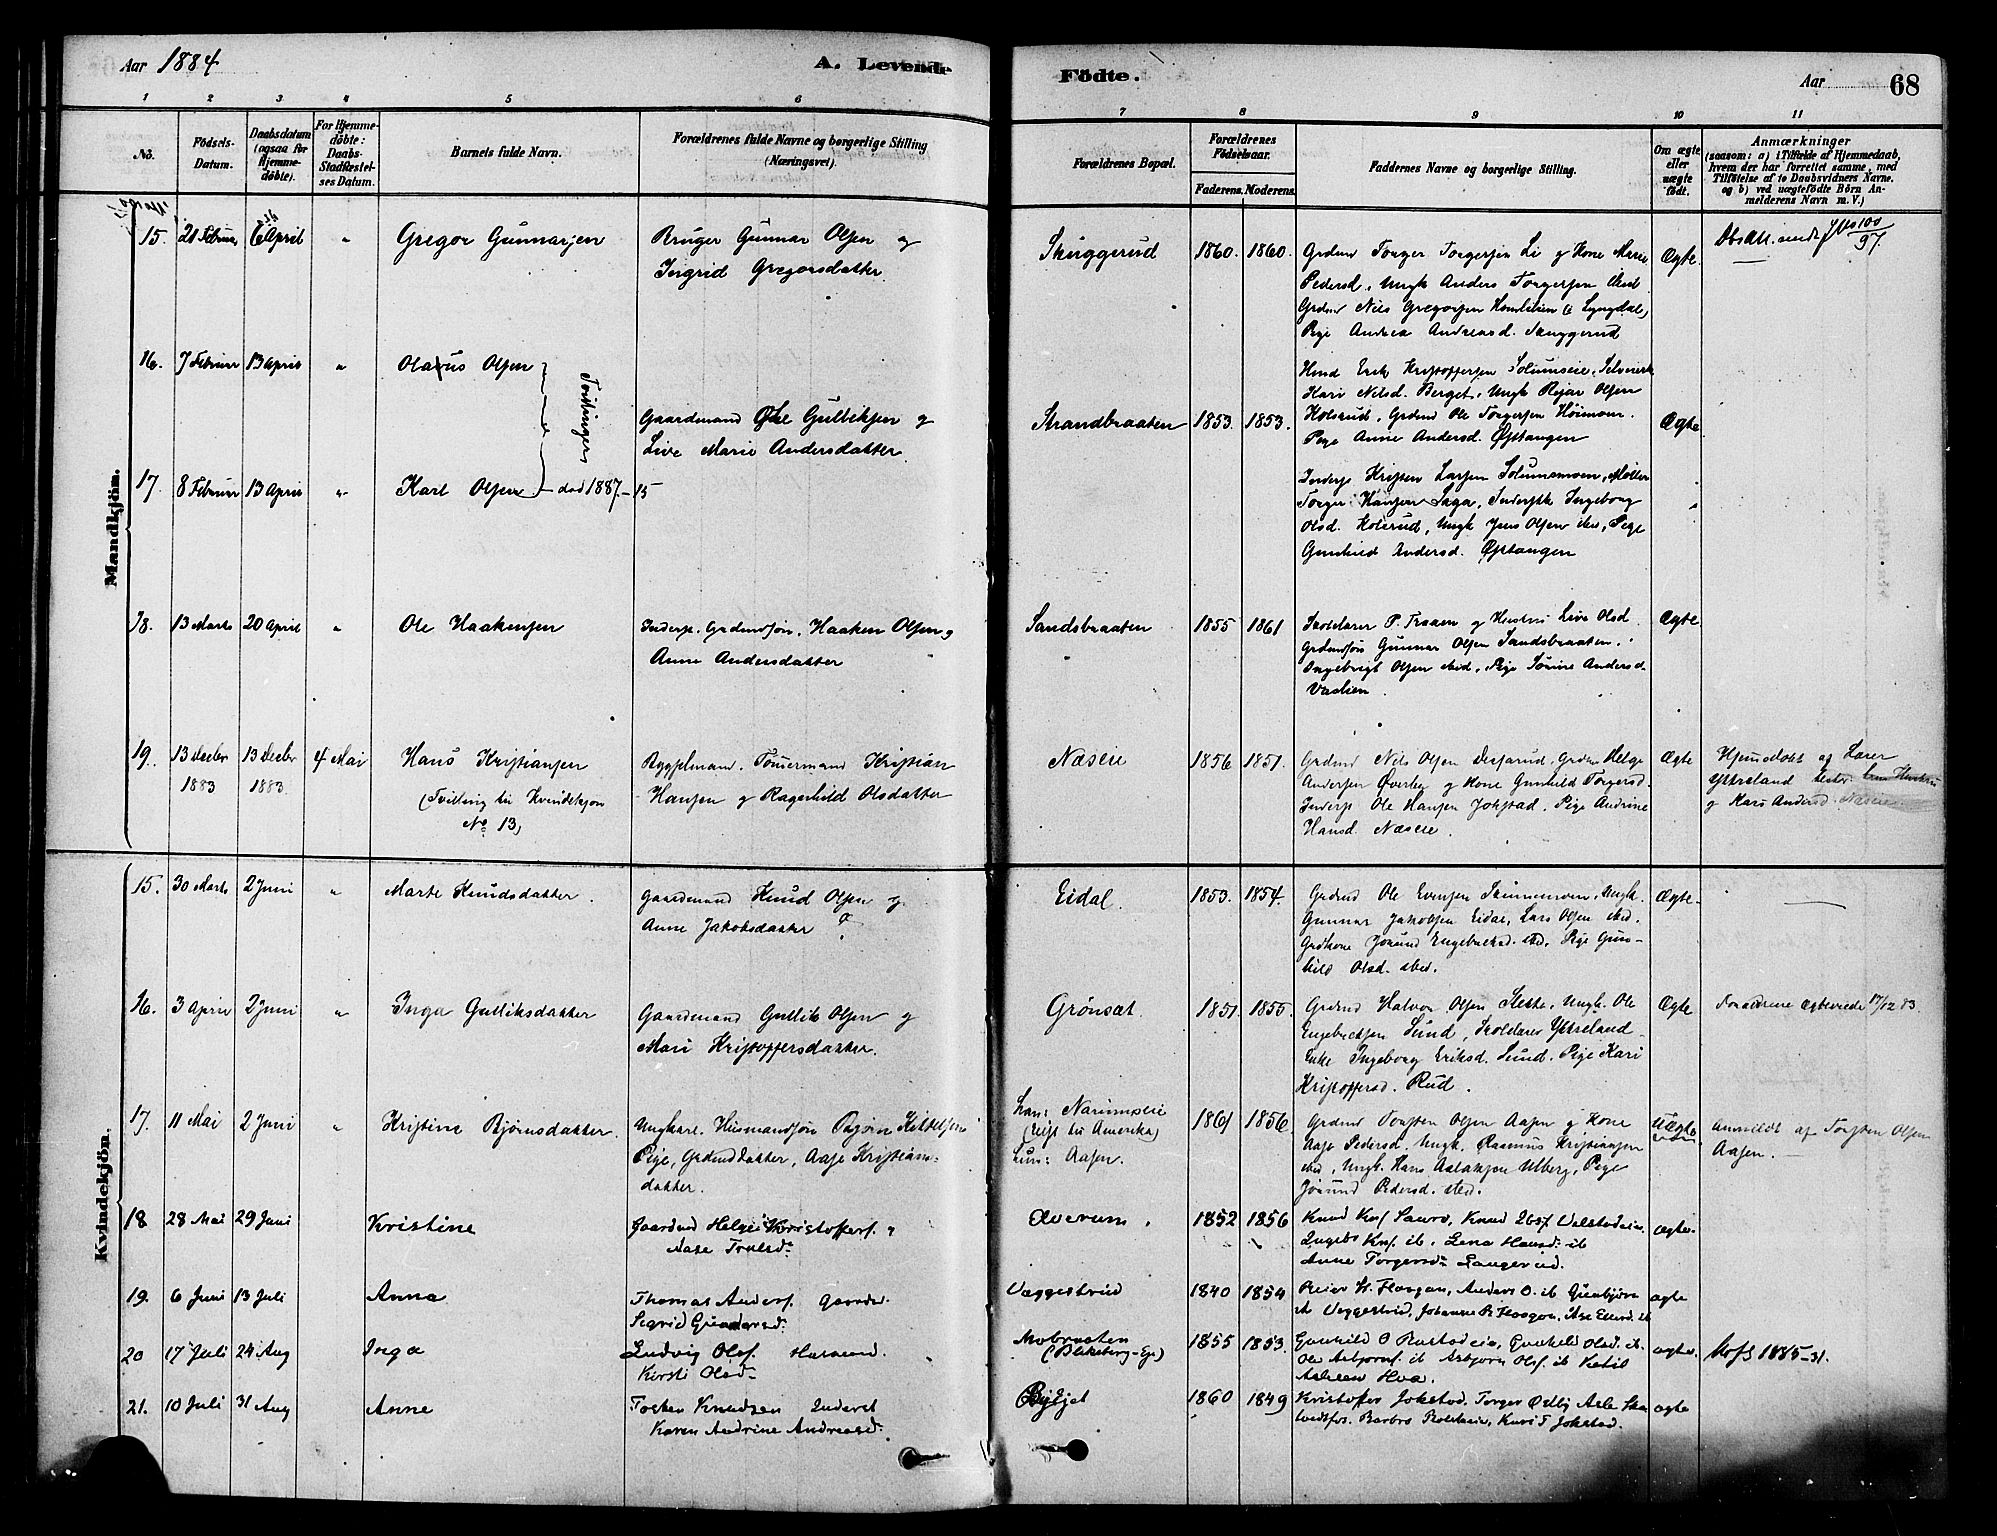 Aar 1884
A. Levende
Födte.
Aar
68
1 2 3 4 5 6 7 8 9 10 11
No.
Födsels-
Datum.
Daabsdatum
(ogsaa for
Hjemme-
döbte).
For Hjemme-
döbte:
Daabs-
Stadfæstel-
ses Datum.
Barnets fulde Navn.
Forældrenes fulde Navne og borgerlige Stilling
(Næringsvei).
Forældrenes Bopæl.
Forældrenes
Födselsaar.
Faderens. Moderens.
Faddernes Navne og borgerlige Stilling.
Om ægte
eller
uægte
födt.
Anmærkninger
(saasom: a) i Tilfælde af Hjemmedaab,
hvem der har forrettet samme, med
Tilföielse af to Daabsvidners Navne.
og b) ved uægtefödte Börn An-
melderens Navn m. V.)
Mandkjön.
15. 21 Februar 6 April " Gregor Gunnarsen
Bruger Gunnar Olsen og
Ingrid Gregorsdatter
Skuggerud 1860. 1860.
Grdmd Torger Torgersen Li og Kone Marie
Pedersd., Ungk Anders Torgersen sted
Grdmd Nils Gregorsen Homlelien (i Lyngdal,
Pige Andrea Andreasd. Skuggerud
Ægte.
100
97
16. 7 Februar 13 April " Olaus Olsen
Tvillinger
Gaardmand Ole Gulliksen og
Live Marie Andersdatter.
Strandbraaten 1853. 1853.
Hmd Erik Kristoffersen Solumseie,
Kari Nilsd. Berget, Ungk Reier Olsen
Kolsrud, Grdmd Ole Torgersen Höimom.
Pige Anne Andersd. Øfstangen
Ægte
17. 8 Februar 13 April " Karl Olsen - död 1887 - 15
Inderst Kristen Larsen Solumsmoen, Möller
Torger Hansen Laga, Ingeborg
Olsd. Kolsrud, Ungk Jens Olsen ibd, Pige
Gunhild Andersd. Øfstangen
"
18. 13 Marts 20 April " Ole Haakensen
Inderst. Grdmdsön. Haaken Olsen og
Anne Andersdatter
Sandsbraaten 1855 1861
Skolelærer P. Traaen og Hustru Live Olsd.
Grdmdsön Gunnar Olsen Sandsbraaten.
Ingebrigt Olsen sted, Pige Andersd.
Ægte
19. 13 Decbr 13 Decbr 4 Mai Hans Kristiansen
1883 1883 (Tvilling til Kvindekjön
No 13)
Bygselmand. Tömmermand Kristian
Hansen og Ragnhild Olsdatter
Næseie 1856 1851.
Grdmd Nils Olsen Grdmd Helge
Andersen Överby og Kone Gunhild Torgersd.
Inderst Ole Hansen Jokstad, Pige Andrine
Hansd. Næseie.
Ægte
Hjemmedöbt af Lærer
Ytteland
og Kari Andersd. Næseie
Kvindekjön.
15. 30 Marts 2 Juni " Marte Knudsdatter.
Gaardmand Knud Olsen og
Anne Jakobsdatter
Eidal. 1853. 1854.
Grdmd Ole Evensen Skinnesmoen, Ungk.
Gunnar Jakobsen Eidal, Lars Olsen sted.
Grdkone Jörund Engebretsd. sted, Pige Gun-
hild Olsd. sted.
Ægte.
16. 3 April 2 Juni " Inga Gulliksdatter
Gaardmand Gullik Olsen og
Mari Kristoffersdatter.
Grönsæt. 1851. 1855.
Grdmd Halvor Olsen Slette, Ungk. Ole
Engebretsen Lund, Skolelærer Ytteland
Enke Ingeborg Eriksd. Lund. Pige Kari
Kristoffersd. Rud.
Ægte
Forældrene ægteviede 17/12 83.
17. 11 Mai 2 Juni " Kristine Björnsdatter.
Ungkarl. Husmandsön Björn Kittelsen
Pige, Grdmddatter, Aase Kristians-
datter.
han: Narumseie
(reist til Amerika)
hun: Aasen.
1861 1856
Grdmd Torsten Olsen Aasen og Kone
Aase Pedersd. Ungk. Rasmus Kristiansen
sted, Ungk. Hans Aslaksen Ulberg, Pige
Jörund Pedersd. sted.
Uægte
anmeldt af Torsten Olsen
Aasen.
18 28 Mai 29 Juni Kristine
Gaardmd Helge Kristoffers.
Aase Trulsd.
Averum. 1852 1856
Knud Kns. Saure, Knud
Ingeb. Kns. ib. Lena Hansd. ib
Anne Torgersd. Langerud.
ægte.
19. 6 Juni 13 Juli Anna
Thomas Anders. Gaardmd.
Sigrid Gunnarsd.
Veggestrud 1840 1854
Reier H. Flaagan, Anders O. ib
Veggestrud, Johanne R. Flaagan,
ægte
20 17 Juli 24 Aug Inga
Ludvig Olsf. Husmand.
Kirsti Olsd.
Mobraaten
(Blikeberg-Eje)
1855 1853.
Gunhild O Rustadeie, Gunhild Olsd. ib.
Ole Asbjörns. ib Asbjörn Ols. ib Ketil
ægte. 1885-31.
21. 10 Juli 31 Aug Anne
Tosten Knudsen Inderst
Karen Andrine Andreasd.
1860 1849
Kristoffer Jokstad. Torger Ostby
Barbro Kari T Jokstad.
ægte